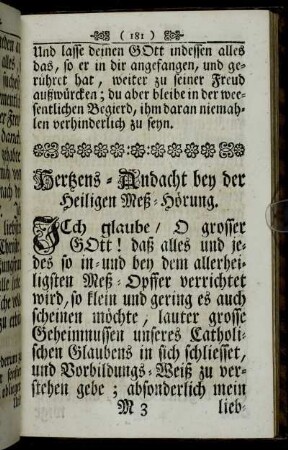 ( 181 )
Und lasse deinen GOtt indessen alles
das, so er in dir angefangen, und ge-
rühret hat, weiter zu seiner Freud
außwürcken; du aber bleibe in der wee-
sentlichen Begierd, ihm daran niemah-
len verhinderlich zu seyn.
Hertzens-Andacht bey der
Heiligen Meß-Hörung.
ICh glaube/ O grosser
GOtt! daß alles und je-
des so in- und bey dem allerhei-
ligsten Meß-Opffer verrichtet
wird, so klein und gering es auch
scheinen möchte, lauter grosse
Geheimnussen unseres Catholi-
schen Glaubens in sich schliesset,
und Vorbildungs-Weiß zu ver-
stehen gebe; absonderlich mein
M 3 lieb-